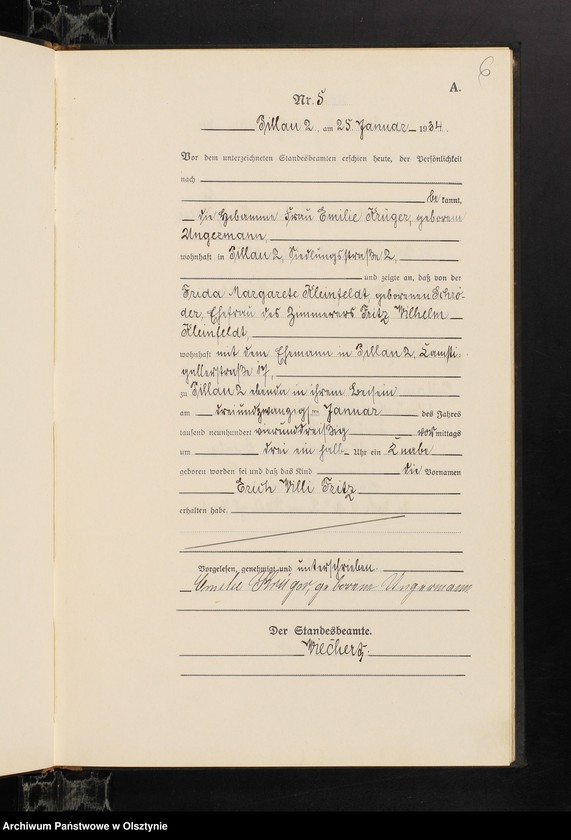 6
A.
Nr. 5
Pillau 2, am 25. Januar 1934.
Vor dem unterzeichneten Standesbeamten erschien heute, der Persönlichkeit
nach
be kannt,
die Hebamme Frau Emilie Krüger, geborene
Ungermann,
wohnhaft in Pillau 2, Siedlungsstraße 2,
und zeigte an, daß von der
Frida Margarete Kleinfeldt, geborenen Schrö-
der, Ehefrau des Zimmerers Fritz Wilhelm
Kleinfeldt,
wohnhaft mit dem Ehemann in Pillau 2, Camsti-
gallerstraße 17,
zu Pillau 2 ebenda in ihrem Beisein
am dreiundzwanzigsten Januar des Jahres
tausend neunhundert vierunddreißig vor mittags
um drei ein halb Uhr ein Knabe
geboren worden sei und daß das Kind die Vornamen
Erich Willi Fritz
erhalten habe.
Vorgelesen, genehmigt und unterschrieben.
Emilie Krüger, geborene Ungermann
Der Standesbeamte.
Wiechert.
Archiwum Państwowe w Olsztynie